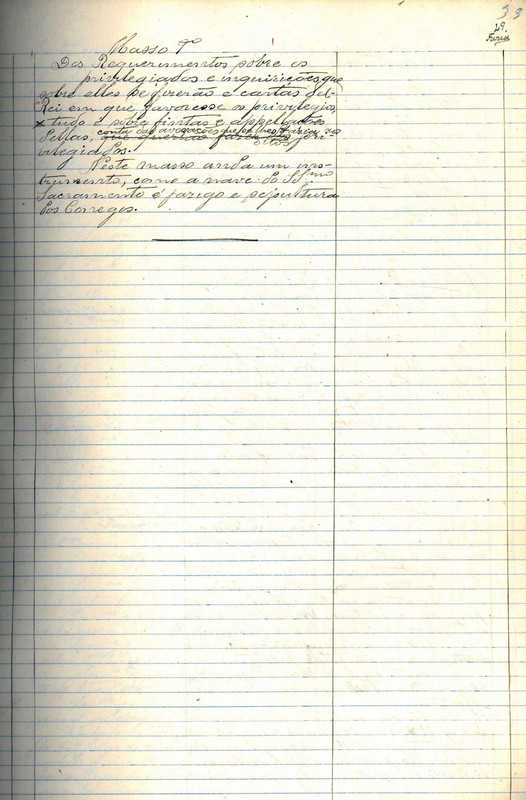 33
49.
Faria
Masso T
Dos Requerimentos sobre os
privilegiados e inquirições que
sobre elles se fizerão e cartas del-
Rei em que favoresse os privilegios,
x tudo e sobre fintas e appellações
dellas, conta das avogações que os
privilegiados.
Neste masso anda um ins-
trumento, como a nave do SS.mo
Sacramento é jazigo e sepultura
dos Conegos.